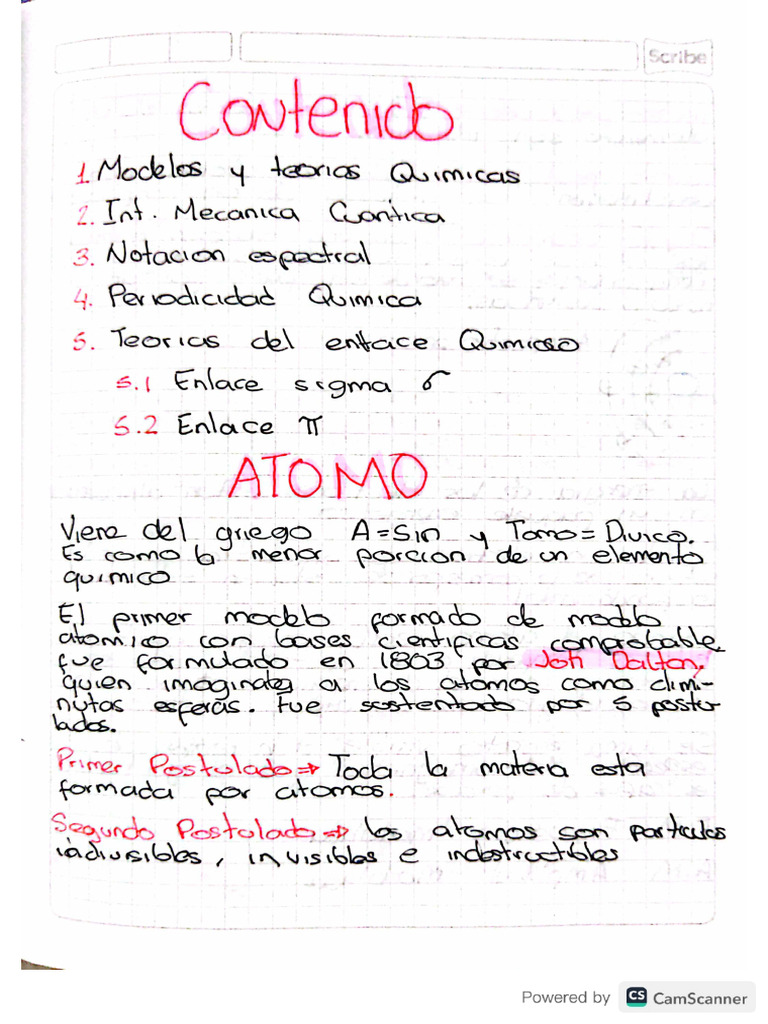 Scribe
Contenido
1. Modelos y teorias Quimicas
2. Int. Mecanica Cuantica
3. Notacion espectral
4. Periodicidad Quimica
5. Teorias del enlace Quimico
5.1 Enlace sigma σ
5.2 Enlace π
ATOMO
Viene del griego A=Sin y Tomo=Divico.
Es como la menor porcion de un elemento
quimico
El primer modelo formado de modelo
atomico con bases cientificas comprobable
fue formulado en 1803 por Joh Dalton,
quien imaginaba a los atomos como dimi-
nutas esferas. Fue sustentado por 5 postu
lados.
Primer Postulado ⇒ Toda la materia esta
formada por atomos.
Segundo Postulado ⇒ los atomos son particulas
indivisibles, invisibles e indestructibles
Powered by CS CamScanner